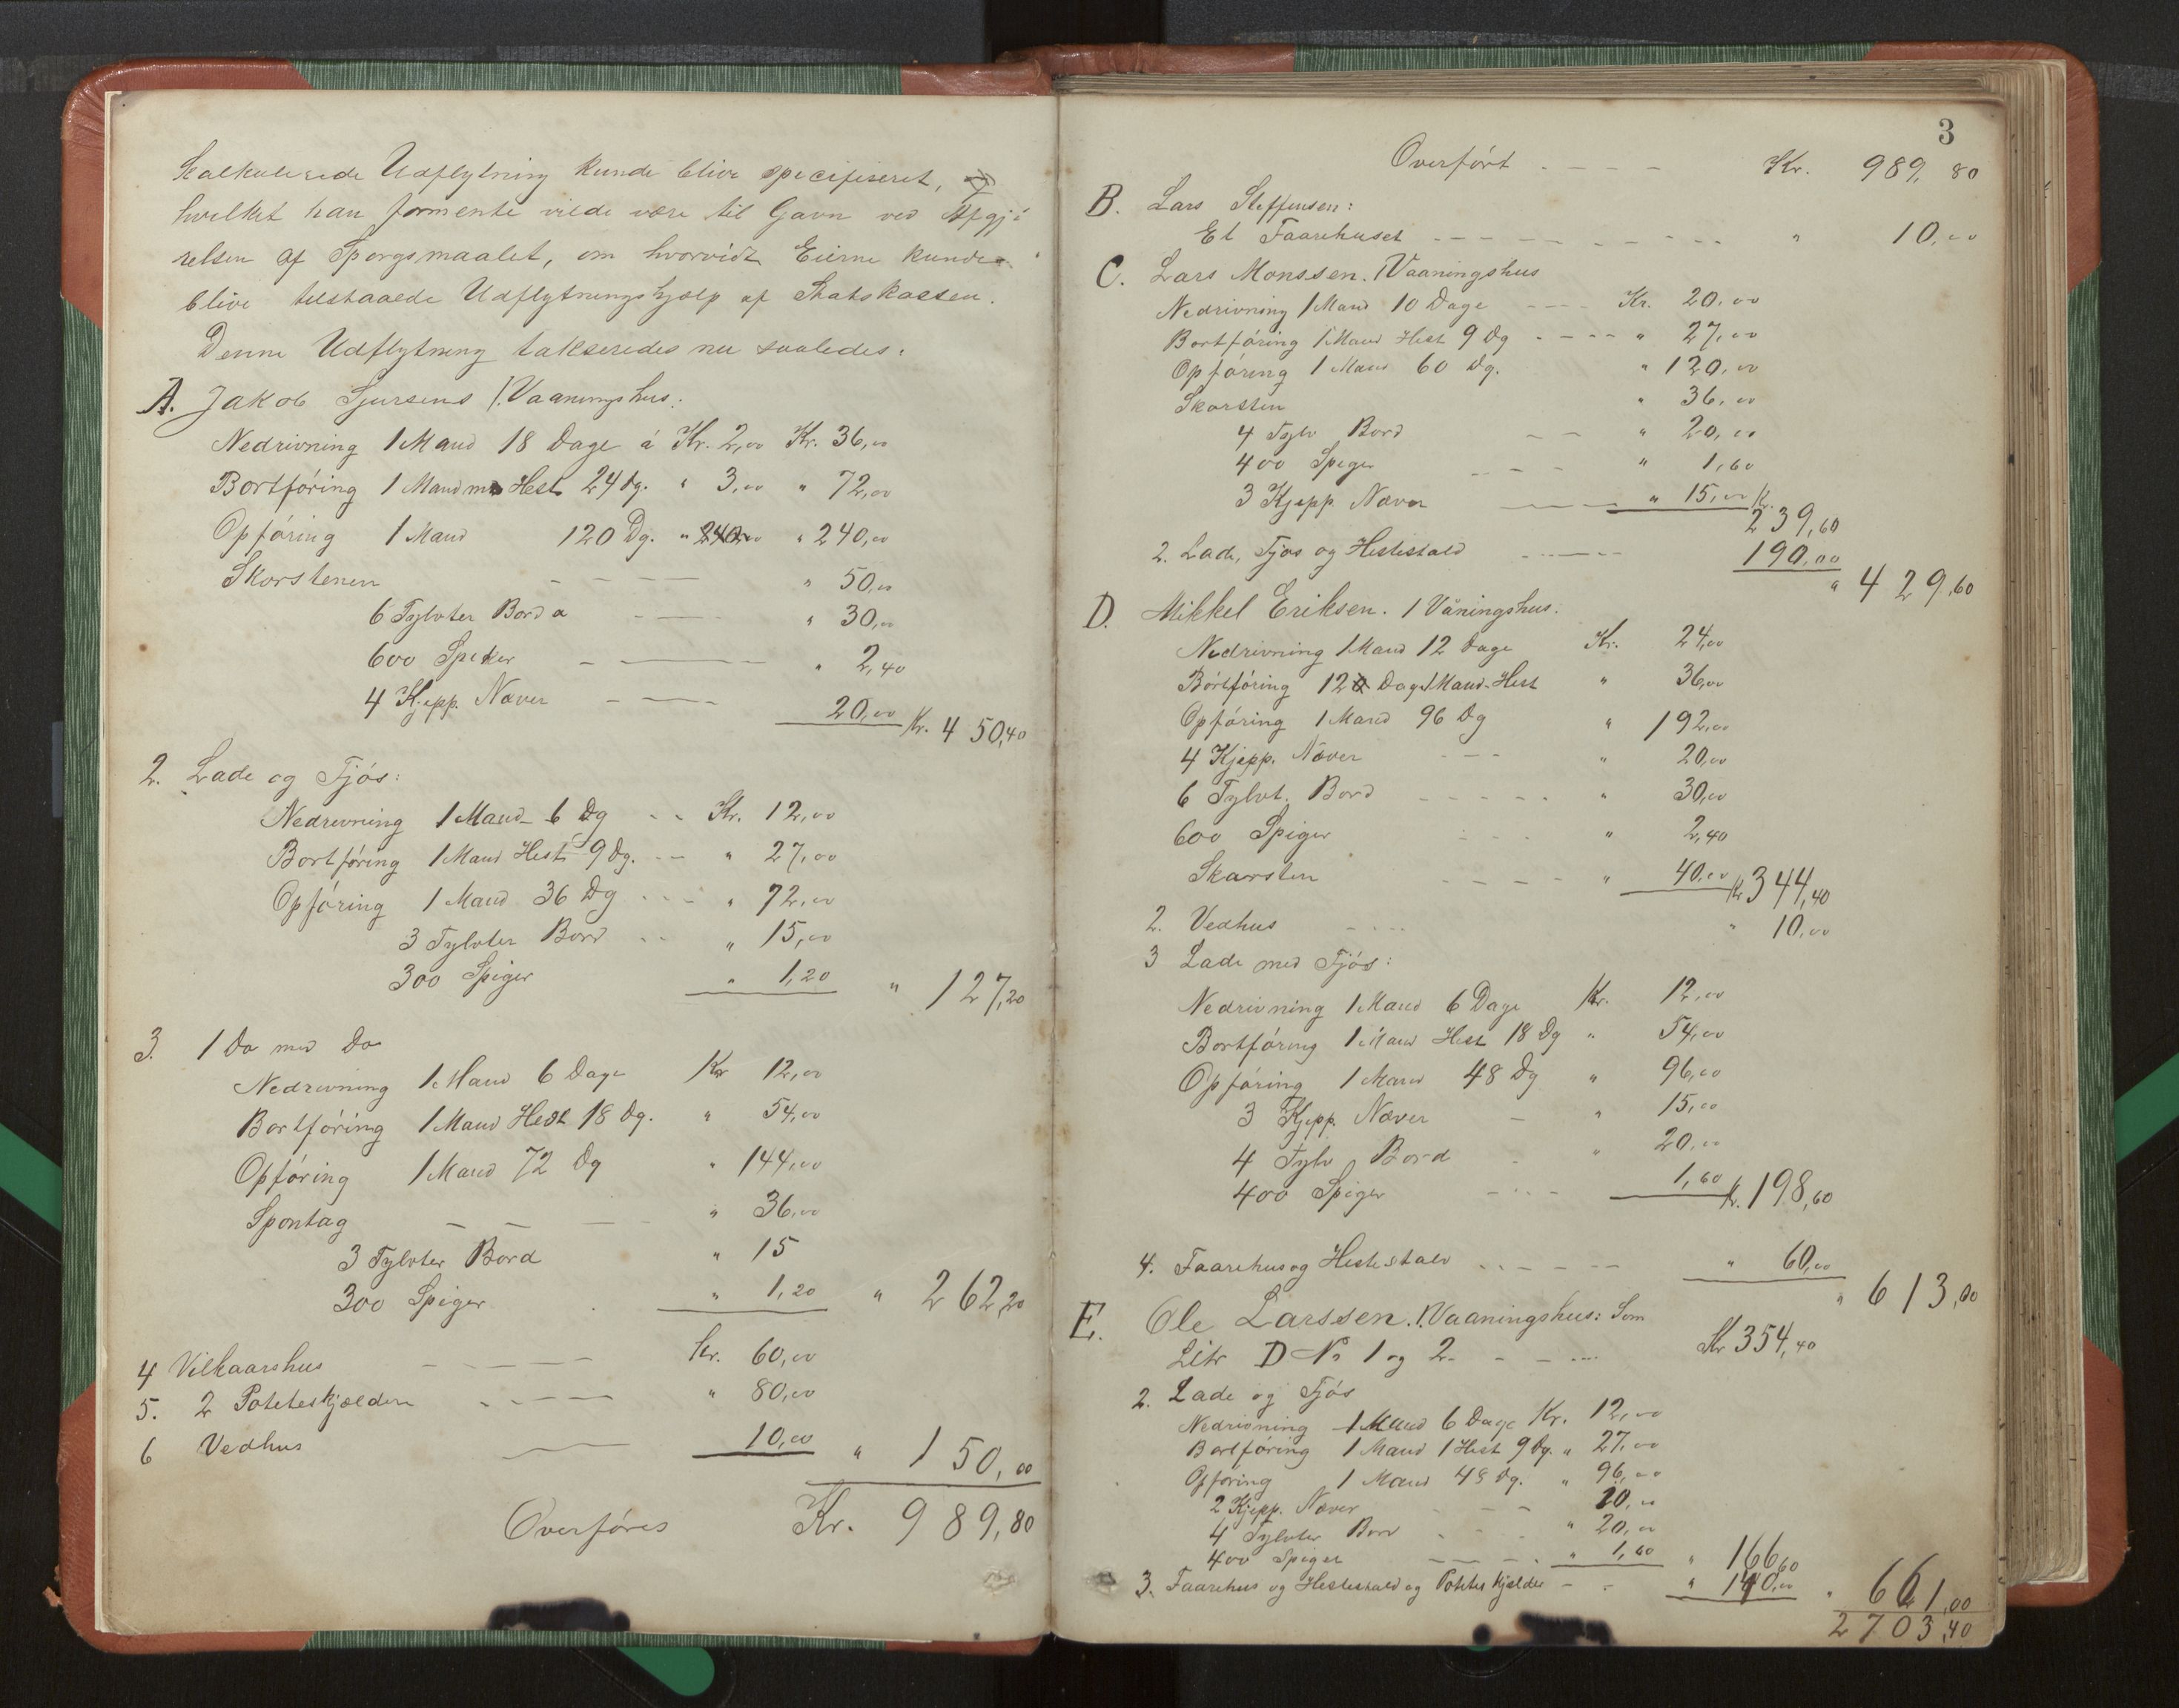 Kalkulerede Udflytning kunde blive specifiseret,
hvilket han formente vilde være til Gavn ved Afgjö-
relsen af Spørgsmaalet, om hvorvidt Eierne kunde
blive tilstaaede Udflytningshjælp af Statskassen.
Denne Udflytning takseredes nu saaledes:
A. Jakob Sjursens 1. Vaaningshus:
Nedrivning 1 Mand 18 Dage á Kr. 2,00 Kr. 36,00
Bortföring 1 Mand m Hest 24 Dg. " 3,00 " 72,00
Opföring 1 Mand 120 Dg. " 240,00 " 240,00
Skorstenen " 50,00
6 Tylvter Bord a " 30,00
600 Spiker " 2,40
4 Kjepp. Næver 20,00 Kr. 450,40
2. Lade og Fjós:
Nedrivning 1 Mand 6 Dg Kr. 12,00
Bortföring 1 Mand Hest 9 Dg. " 27,00
Opföring 1 Mand 36 Dg " 72,00
3 Tylvter Bord " 15,00
300 Spiger " 1,20 " 127,20
3. 1 Do med Do
Nedrivning 1 Mand 6 Dage Kr 12,00
Bortföring 1 Mand Hest 18 Dg. " 54,00
Opföring 1 Mand 72 Dg " 144,00
Spontag " 36,00
3 Tylvter Bord " 15
300 Spiger " 1,20 " 262,20
4 Vilkaarshus Kr. 60,00
5. 2 Poteteskjældere " 80,00
6 Vedhus 10,00 " 150,00
Overföres Kr. 989,80
3
Overfört Kr. 989,80
B. Lars Steffensen:
Et Faarehuset " 10,00
C. Lars Monssen. 1 Vaaningshus
Nedrivning 1 Mand 10 Dage Kr. 20,00
Bortföring 1 Mand Hest 9 Dg " 27,00
Opföring 1 Mand 60 Dg. " 120,00
Skorsten " 36,00
4 Tylv Bord " 20,00
400 Spiger " 1,60
3 Kjepp Næver " 15,00 Kr.
239,60
2. Lade, Fjos og Hestestald 190,00
" 429,60
D. Mikkel Eriksen. 1 Våningshus:
Nedrivning 1 Mand 12 Dage Kr. 24,00
Bortföring 12 Dag 1 Mand-Hest " 36,00
Opföring 1 Mand 96 Dg " 192,00
4 Kjepp. Næver " 20,00
6 Tylvt. Bord " 30,00
600 Spiger " 2,40
Skorsten " 40,00 Kr 344,40
2. Vedhus " 10,00
3 Lade med Fjós:
Nedrivning 1 Mand 6 Dage Kr. 12,00
Bortföring 1 Mand Hest 18 Dg " 54,00
Opföring 1 Mand 48 Dg " 96,00
3 Kjepp. Næver " 15,00
4 Tylv Bord " 20,00
400 Spiger 1,60 Kr. 198,60
4. Faarehus og Hestestald " 60,00
" 613,00
E. Ole Larssen. 1. Vaaningshus: Som
Litr D No 1 og 2 Kr 354,40
2. Lade og Fjós
Nedrivning 1 Mand 6 Dage Kr. 12,00
Bortföring 1 Mand 1 Hest 9 Dg. " 27,00
Opföring 1 Mand 48 Dg. " 96,00
2 Kjepp. Næver 10,00
4 Tylvter Bord " 20,00
400 Spiger " 1,60 " 166,60
3. Faarehus og Hestestald og Potetes Kjelder " 140,00 " 661,00
2703,40